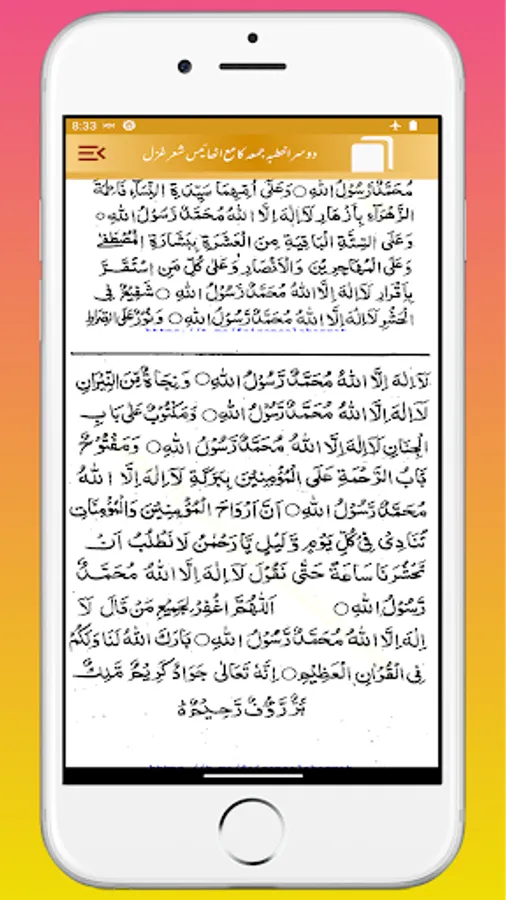 8:33
دوسرا خطبہ جمعہ کا مع اٹھائیس شعر غزل
مُحَمَّدٌ رَّسُوْلُ اللهِ ○ وَعَلٰى اُمِّهِمَا سَيِّدَةِ النِّسَآءِ فَاطِمَةَ
الزَّهْرَآءِ بِاَزْهَارِ لَآ اِلٰهَ اِلَّا اللهُ مُحَمَّدٌ رَّسُوْلُ اللهِ ○
وَعَلَى السِّتَّةِ الْبَاقِيَةِ مِنَ الْعَشَرَةِ بِبَشَارَةِ الْمُصْطَفٰى
وَعَلَى الْمُهَاجِرِيْنَ وَالْاَنْصَارِ وَعَلٰى كُلِّ مَنِ اسْتَقَرَّ
بِاِقْرَارِ لَآ اِلٰهَ اِلَّا اللهُ مُحَمَّدٌ رَّسُوْلُ اللهِ ○ شَفِيْعٌ فِى
الْحَشْرِ لَآ اِلٰهَ اِلَّا اللهُ مُحَمَّدٌ رَّسُوْلُ اللهِ ○ وَنُوْرٌ عَلَى الصِّرَاطِ
لَآ اِلٰهَ اِلَّا اللهُ مُحَمَّدٌ رَّسُوْلُ اللهِ ○ وَنِجَاةٌ مِّنَ النِّيْرَانِ
لَآ اِلٰهَ اِلَّا اللهُ مُحَمَّدٌ رَّسُوْلُ اللهِ ○ وَمَكْتُوْبٌ عَلٰى بَابِ
الْجِنَانِ لَآ اِلٰهَ اِلَّا اللهُ مُحَمَّدٌ رَّسُوْلُ اللهِ ○ وَمَفْتُوْحٌ
بَابُ الرَّحْمَةِ عَلَى الْمُؤْمِنِيْنَ بِبَرَكَةِ لَآ اِلٰهَ اِلَّا اللهُ
مُحَمَّدٌ رَّسُوْلُ اللهِ ○ اَنَّ اَرْوَاحَ الْمُؤْمِنِيْنَ وَالْمُؤْمِنَاتِ
تُنَادِىْ فِىْ كُلِّ يَوْمٍ وَّلَيْلٍ يَا رَحْمٰنُ لَا نَطْلُبُ اَنْ
تَحْشُرَنَا سَاعَةً حَتّٰى نَقُوْلَ لَآ اِلٰهَ اِلَّا اللهُ مُحَمَّدٌ
رَّسُوْلُ اللهِ ○ اَللّٰهُمَّ اغْفِرْ لِجَمِيْعِ مَنْ قَالَ لَآ
اِلٰهَ اِلَّا اللهُ مُحَمَّدٌ رَّسُوْلُ اللهِ ○ بَارَكَ اللهُ لَنَا وَلَكُمْ
فِى الْقُرْاٰنِ الْعَظِيْمِ ○ اِنَّهٗ تَعَالٰى جَوَادٌ كَرِيْمٌ مَّلِكٌ
بَرٌّ رَّؤُوْفٌ رَّحِيْمٌ ○